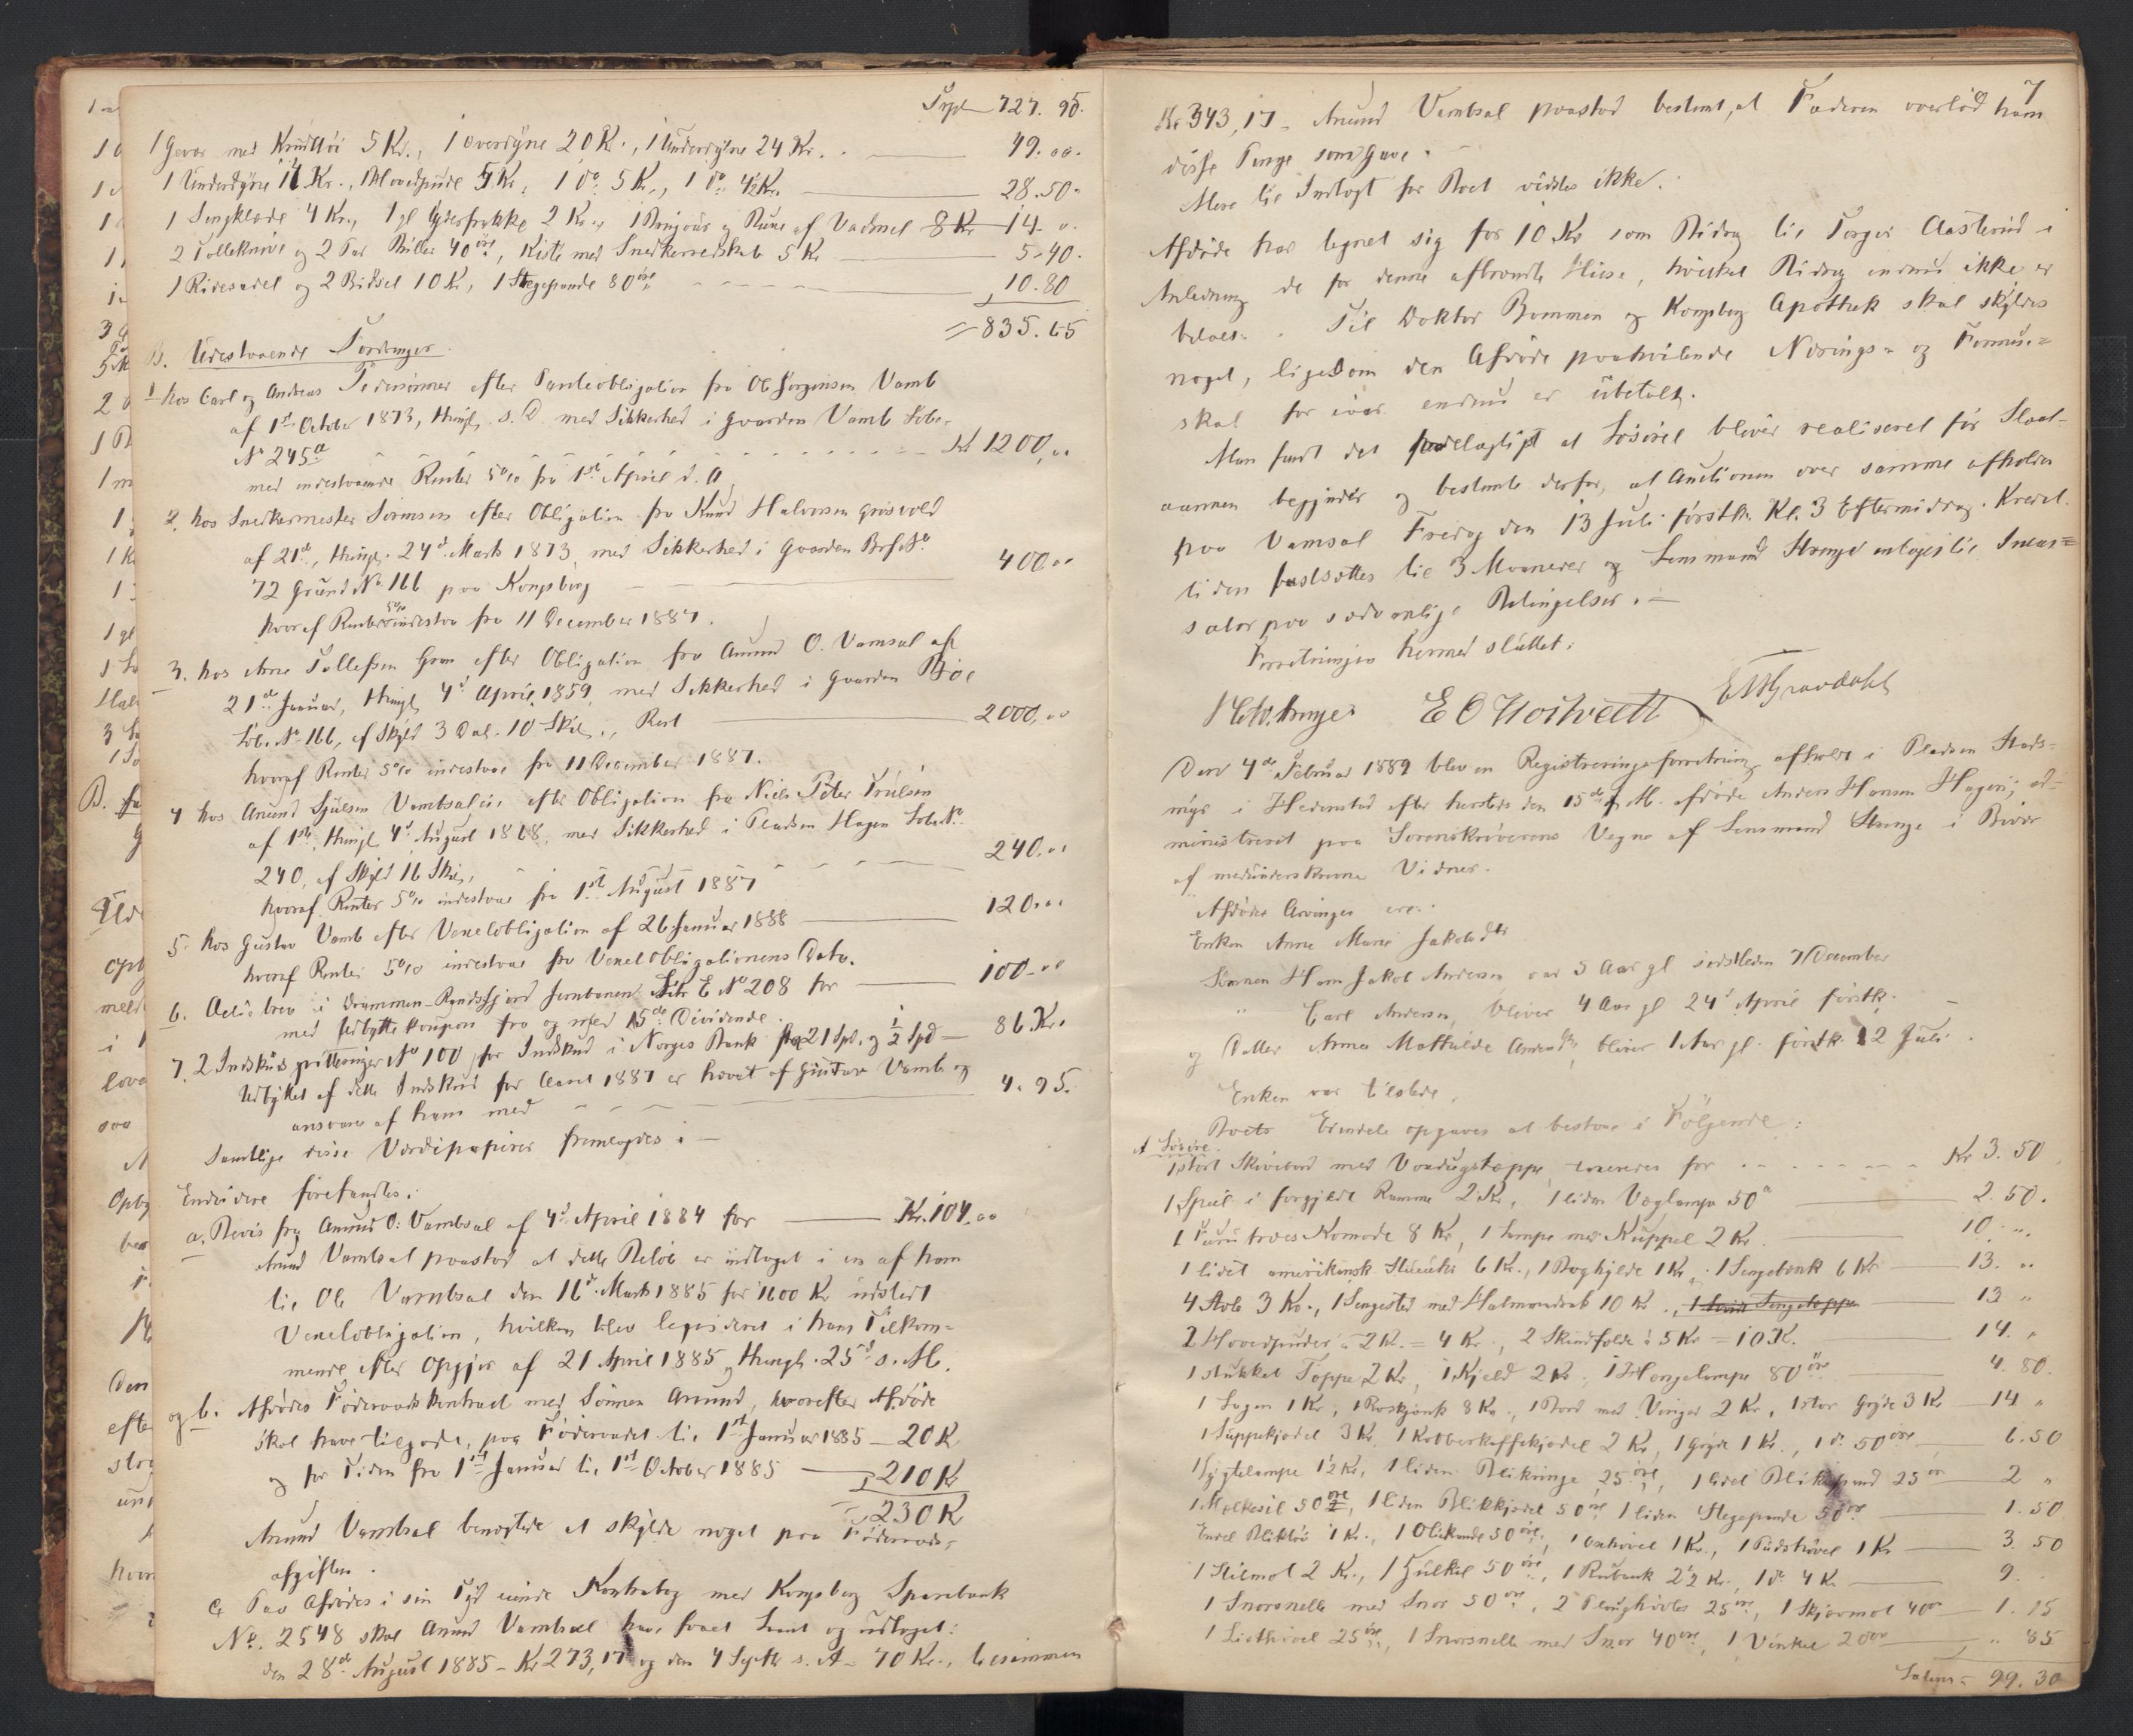 Trpt 727.95.
1 Gevær med Krudttøi 5 Kr., 1 Overdyne 20 Kr., 1 Underdyne 24 Kr. 49.00.
1 Underdyne 14 Kr., 1 Hovedpude 5 Kr, 1 do 5 Kr., 1 do 4½ Kr. 28.50.
1 Sengklæde 4 Kr., 1 gl Yderfrakke 2 Kr., 1 og Buxe af Vadmel 8 Kr 14. 0.
2 Tolleknive og 2 Par Briller 40 øre, Kiste med Snedkerredskab 5 Kr 5.40.
1 Ridesadel og 2 Bidsel 10 Kr, 1 Stegepande 80 øre 10.80
= 835.65
B. Udestaaende Fordringer.
1 hos Carl og Andreas efter Panteobligation fra Ole Jørgensen Vamb
af 1ste October 1873, thingl. s. D. med Sikkerhed i Gaarden Vamb Løbe-
No 245a Kr 1200,00
med indestaaende Renter 5% fra 1ste April d. A.
2. hos Snedkermester Sørensen efter Obligation fra Knud Halvorsen Grosvold
af 21de, thingl. 24de Marts 1873, med Sikkerhed i Gaarden Brf. No
72 Grund No 166 paa Kongsberg 400.00
hvoraf Renter 5% indestaa fra 11 December 1887.
3. hos Arne Tollefsen Gran efter Obligation fra Amund O. Vamsal af
21de Januar, thingl. 4de April 1859, med Sikkerhed i Gaarden Bjøe
Løb. No 166, af Skyld 3 Dal. 10 Skil., Rest 2000.00
hvoraf Renter 5% indestaae fra 11 December 1887.
4 hos Amund Sjulsen Vambsaleie efter Obligation fra Niels Peter Poulsen
af 1ste, thingl 4de August 1868, med Sikkerhed i Pladsen Hagen Løbe No
240, af Skyld 16 Skil., 240.00
hvoraf Renter 5% indestaae fra 1ste August 1887
5. hos Gustav Vamb efter Vexelobligation af 26 Januar 1888 120.00
hvoraf Renter 5% indestaae fra Vexelobligationens Dato.
6. Actiebrev i Drammen-Randsfjord Jernbanen Litr E No 208 for 100.00
med Udbyttekoupon fra og med 15de Dividende.
7. 2 Indskudsqvitteringer No 100 for Indskud i Norges Bank fra 21 Spd. og ½ Spd 86 Kr.
Udbyttet af dette Indskud for Aaret 1887 er hævet af Gustav Vamb og
ansvares af ham med 4.95.
Samtlige disse Værdipapirer fremlagdes.
Endvidere forefandtes:
a. Bevis fra Amund O. Vambsal af 4de April 1884 for Kr. 104.00
Amund Vambsal paastod at dette Beløb er indtaget i en af ham
til Ole Vambsal den 16de Marts 1885 for 1600 Kr udstedt
Vexelobligation, hvilken blev leqvideret i hans Tilkom-
mende efter Opgjør af 21 April 1885, thingl. 25de s. M.
og b. Afdødes Føderaadskontract med Sønnen Amund, hvorefter Afdøde
skal have tilgode, paa Føderaadet til 1ste Januar 1885 20 Kr
og for Tiden fra 1ste Januar til 1ste October 1885 210 Kr
= 230 Kr
Amund Vambsal benægtede at skylde noget paa Føderaads-
afgiften.
c. Paa Afdødes i sin Tid eiende Kontrabog med Kongsberg Sparebank
No. 2548 skal Amund Vambsal have faaet Laant og udtaget:
den 28de August 1885 - Kr 273,17 og den 4 Septbr s. A - 70 Kr., tilsammen
7
Kr 343,17 - Amund Vambsal paastod bestemt, at Faderen overlod ham
disse Penge som Gave.
Mere til Indtægt for Boet vidstes ikke.
Afdøde har tegnet sig for 10 Kr som Bidrag til Torger Aasterud i
Anledning de for denne afbrændte Huse, hvilket Bidrag endnu ikke er
betalt. Til Doktor Bommen og Kongsberg Apothek skal skyldes
noget, ligesom den Afdøde paahvilende Nærings- og Formues=
skat for iaar endnu er ubetalt.
Man fandt det fordelagtigst at Løsøret bliver realiseret før Slaat-
aannen begynder og bestemte derfor, at Auctionen over samme afholdes
paa Vamsal Fredag den 13 Juli førstk. Kl. 3 Eftermiddag. Kredit-
tiden fastsættes til 3 Maaneder og Lensmand Strenge antages til Incas=
sator paa sædvanlige Betingelser.
Forretningen hermed sluttet.
E O Hoitveett
Den 4de Februar 1889 blev en Registreringsforretning afholdt i Pladsen Stads-
myr i Hedenstad efter hersteds den 15de f. M. afdøde Anders Hansen Hagen; ad-
ministreret paa Sorenskriverens Vegne af Lensmand Strenge i Bivær
af medunderskrevne Vidner.
Afdødes Arvinger ere:
Enken Anne Marie Jakobsdtr
Sønnen Hans Jakob Andersen, var 5 Aar gl sidstleden 7 December
" Carl Andersen, bliver 4 Aar gl 24de April førstk.
og Datter Anna Mathilde Andersdtr, bliver 1 Aar gl. førstk. 12 Juli.
Enken var tilstede.
Boets Eiendele opgaves at bestaae i Følgende:
A Løsøre.
1 stort Skivebord med Voxdugstæppe, taxeredes for Kr 3.50
1 Speil i forgyldt Ramme 2 Kr, 1 liden Væglampe 50 ø 2.50.
1 Furutræes Komode 8 Kr, 1 Lampe med Kuppel 2 Kr 10. "
1 lidet amerikansk Stueuhr 6 Kr., 1 Boghylde 1 Kr, 1 Sengebænk 6 Kr 13. "
4 Stole 3 Kr., 1 Sengested med Halmmadrats 10 Kr., 13 "
2 Hovedpuder à 2 Kr. = 4 Kr, 2 Skindfelde à 5 Kr = 10 Kr. 14. "
1 stukket Tæppe 2 Kr, 1 Kjeld 2 Kr, 1 Hængelampe 80 øre 4.80.
1 Lagen 1 Kr, 8 Kr., 1 Bord med Vinger 2 Kr, 1 stor Gryde 3 Kr 14 "
1 Suppekjedel 3 Kr, 1 Kobberkaffekjedel 2 Kr, 1 Gryde 1 Kr., 1 do 50 øre 6.50
1 Lygtelampe 1½ Kr, 1 liden 25 øre, 1 lidet Blikspand 25 ør 2 "
1 Melkesil 50 øre, 1 liden Blikkjedel 50 øre 1 liden Stegepande 50 øre 1.50
Endel Bliktøi 1 Kr., 1 Oliekande 50 øre, 1 Oxhøvel 1 Kr., 1 Pudshøvel 1 Kr 3.50
1 Stilmot 2 Kr., 1 50 øre, 1 Rubank 2½ Kr., 1 do 4 Kr 9.
1 Snorsnelle med Snor 50 øre, 2 Ploughøvler 25 øre, 1 Skjævmot 40 ør 1.15
1 Listhøvel 25 øre, 1 Snorsnelle med Snor 40 øre, 1 Vinkel 20 ør " 85
Lateris = 99.30